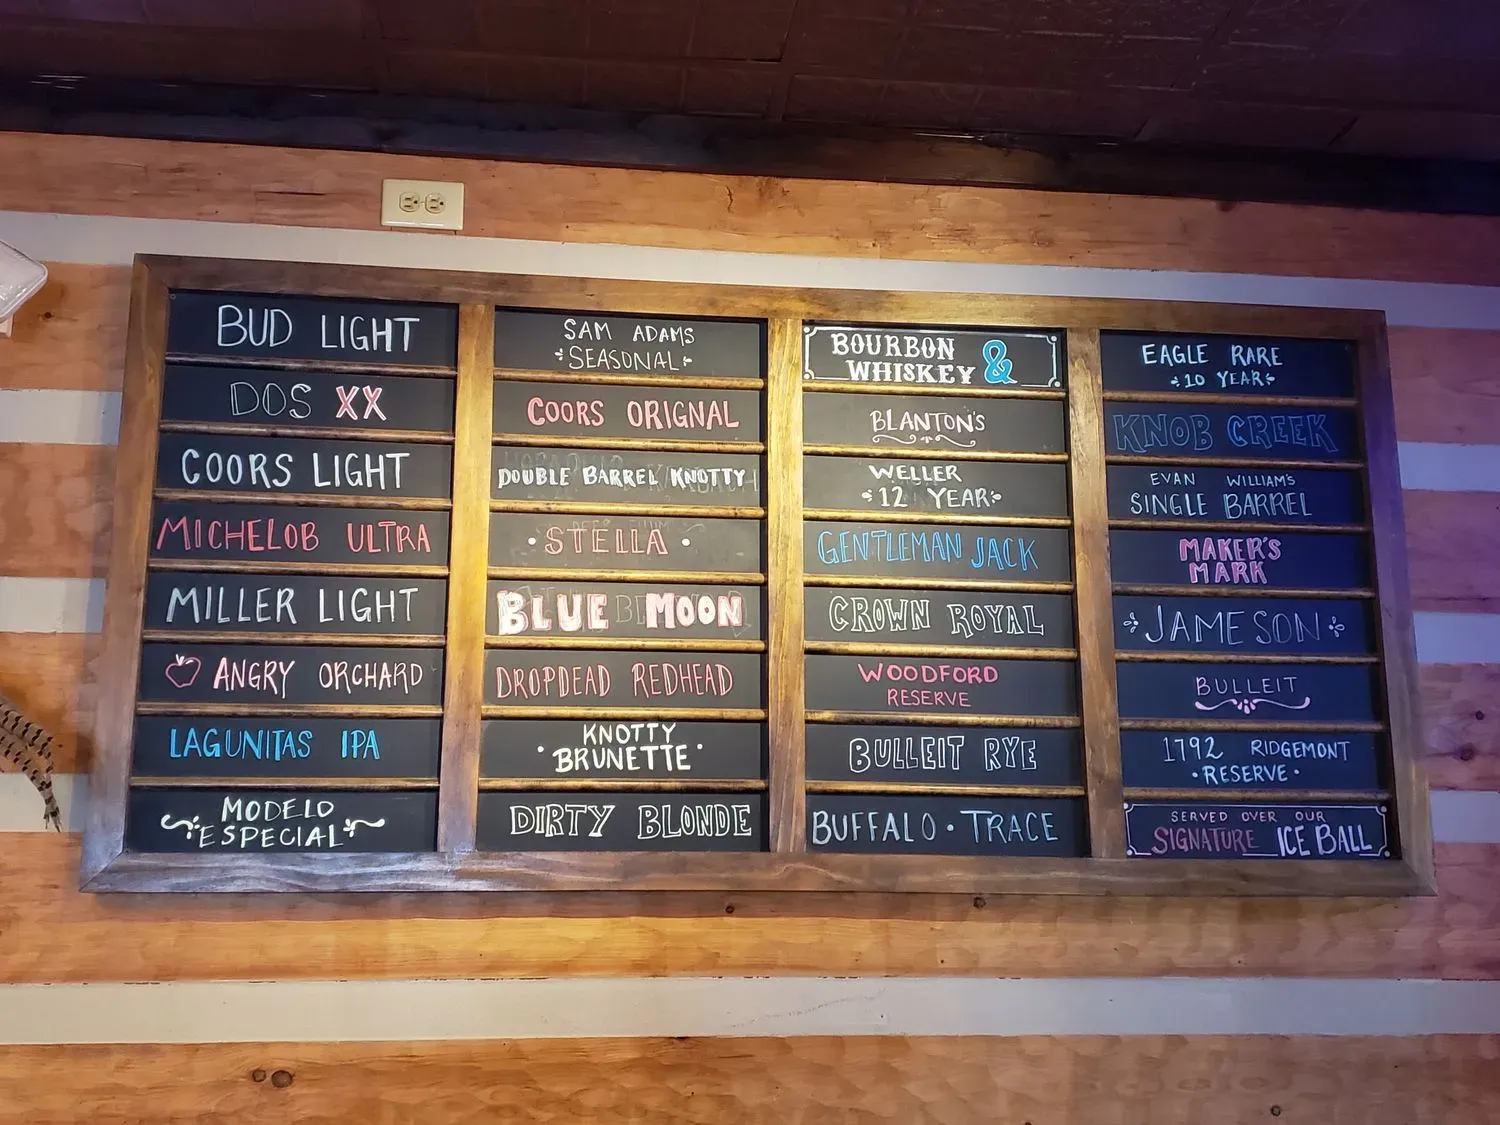 BUD LIGHT
DOS XX
COORS LIGHT
MICHELOB ULTRA
MILLER LIGHT
ANGRY ORCHARD
LAGUNITAS IPA
MODELO
ESPECIAL
SAM ADAMS
SEASONAL
COORS ORIGNAL
DOUBLE BARREL KNOTTY
STELLA
BLUE MOON
DROPDEAD REDHEAD
KNOTTY
BRUNETTE
DIRTY BLONDE
BOURBON &
WHISKEY
BLANTON'S
WELLER
12 YEAR
GENTLEMAN JACK
CROWN ROYAL
WOODFORD
RESERVE
BULLEIT RYE
BUFFALO • TRACE
EAGLE RARE
10 YEAR
KNOB CREEK
EVAN WILLIAM'S
SINGLE BARREL
MAKER'S
MARK
JAMESON
BULLEIT
1792 RIDGEMONT
• RESERVE •
SERVED OVER OUR
SIGNATURE ICE BALL